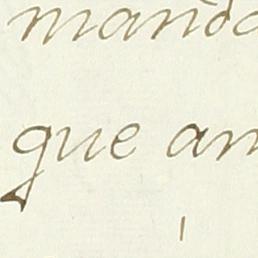 mando
que an